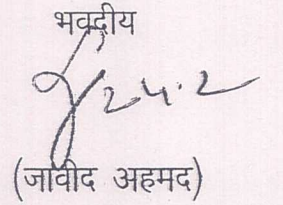 भवदीय
24.2
(जावीद अहमद)